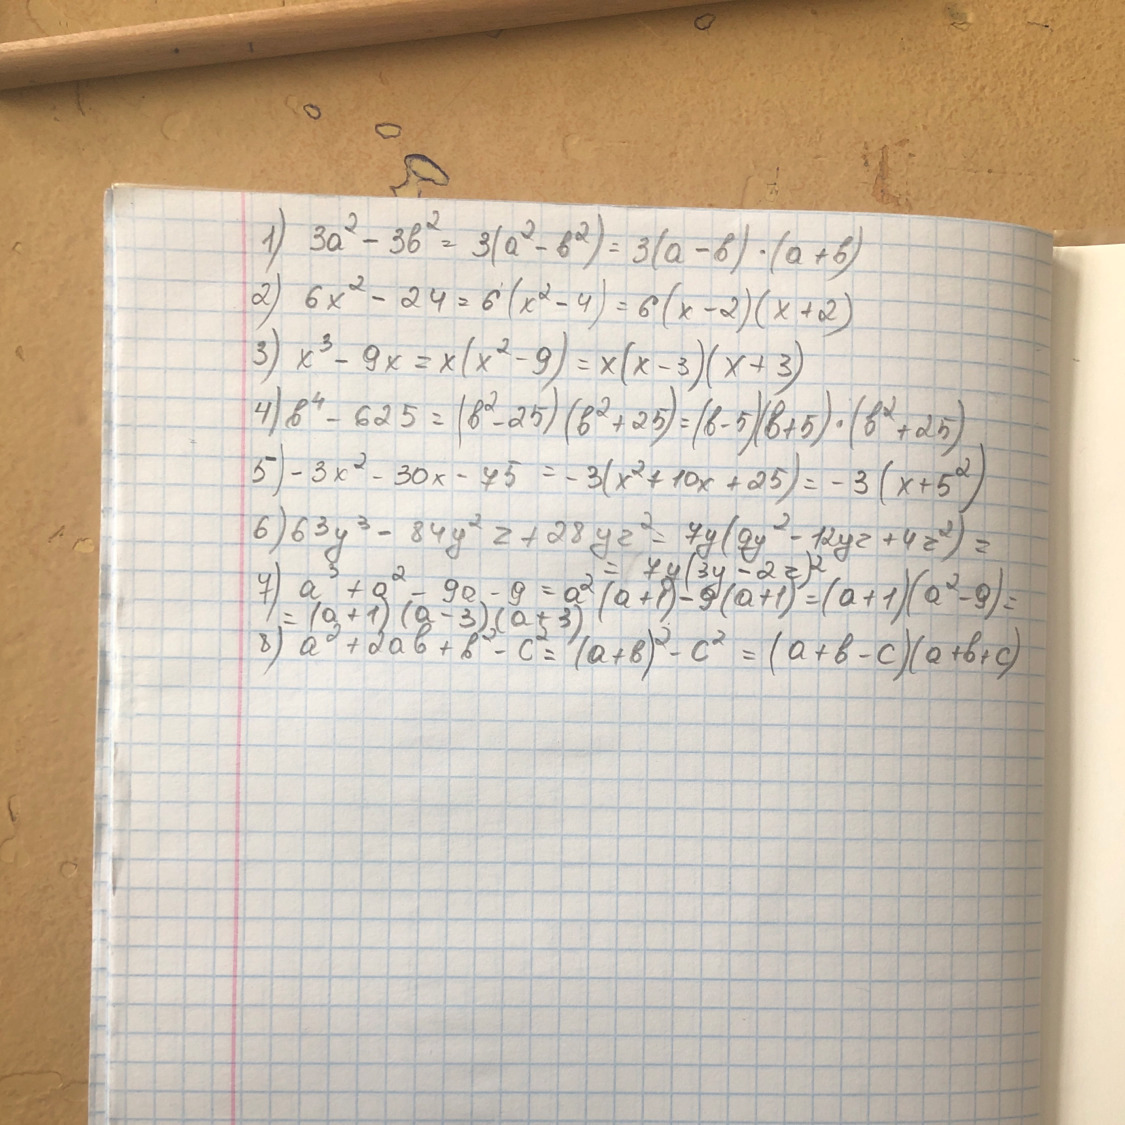 1) 3a² - 3в² = 3(a² - в²) = 3(a - в) · (a + в)
2) 6x² - 24 = 6(x² - 4) = 6(x - 2)(x + 2)
3) x³ - 9x = x(x² - 9) = x(x - 3)(x + 3)
4) в⁴ - 625 = (в² - 25)(в² + 25) = (в - 5)(в + 5) · (в² + 25)
5) - 3x² - 30x - 75 = - 3(x² + 10x + 25) = - 3(x + 5²)
6) 63y³ - 84y²z + 28yz² = 7y(9y² - 12yz + 4z²) =
= 7y(3y - 2z)²
7) a³ + a² - 9a - 9 = a²(a + 1) - 9(a + 1) = (a + 1)(a² - 9) =
= (a + 1)(a - 3)(a + 3)
8) a² + 2aв + в² - c² = (a + в)² - c² = (a + в - c)(a + в + c)